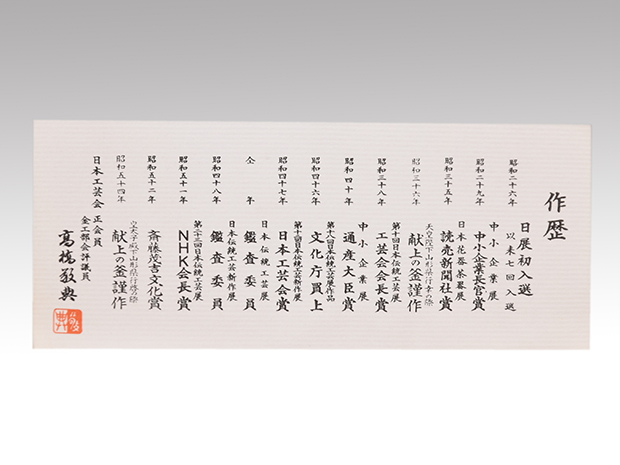 作歴
昭和二十六年 日展初入選
以来七回入選
中小企業展
昭和二十九年 中小企業長官賞
日本花器茶器展
昭和三十五年 読売新聞社賞
天皇陛下山形県行幸の際
昭和三十六年 献上の釜謹作
第十回日本伝統工芸展
昭和三十八年 工芸会会長賞
中小企業展
昭和四十年 通産大臣賞
第十八回日本伝統工芸展作品
昭和四十六年 文化庁買上
第十回日本伝統工芸新作展
昭和四十七年 日本工芸会賞
日本伝統工芸展
仝年 鑑査委員
日本伝統工芸新作展
昭和四十八年 鑑査委員
第二十三回日本伝統工芸展
昭和五十一年 NHK会長賞
昭和五十二年 斎藤茂吉文化賞
皇太子殿下山形県行啓の際
昭和五十四年 献上の釜謹作
日本工芸会正会員
金工部会評議員
高橋敬典